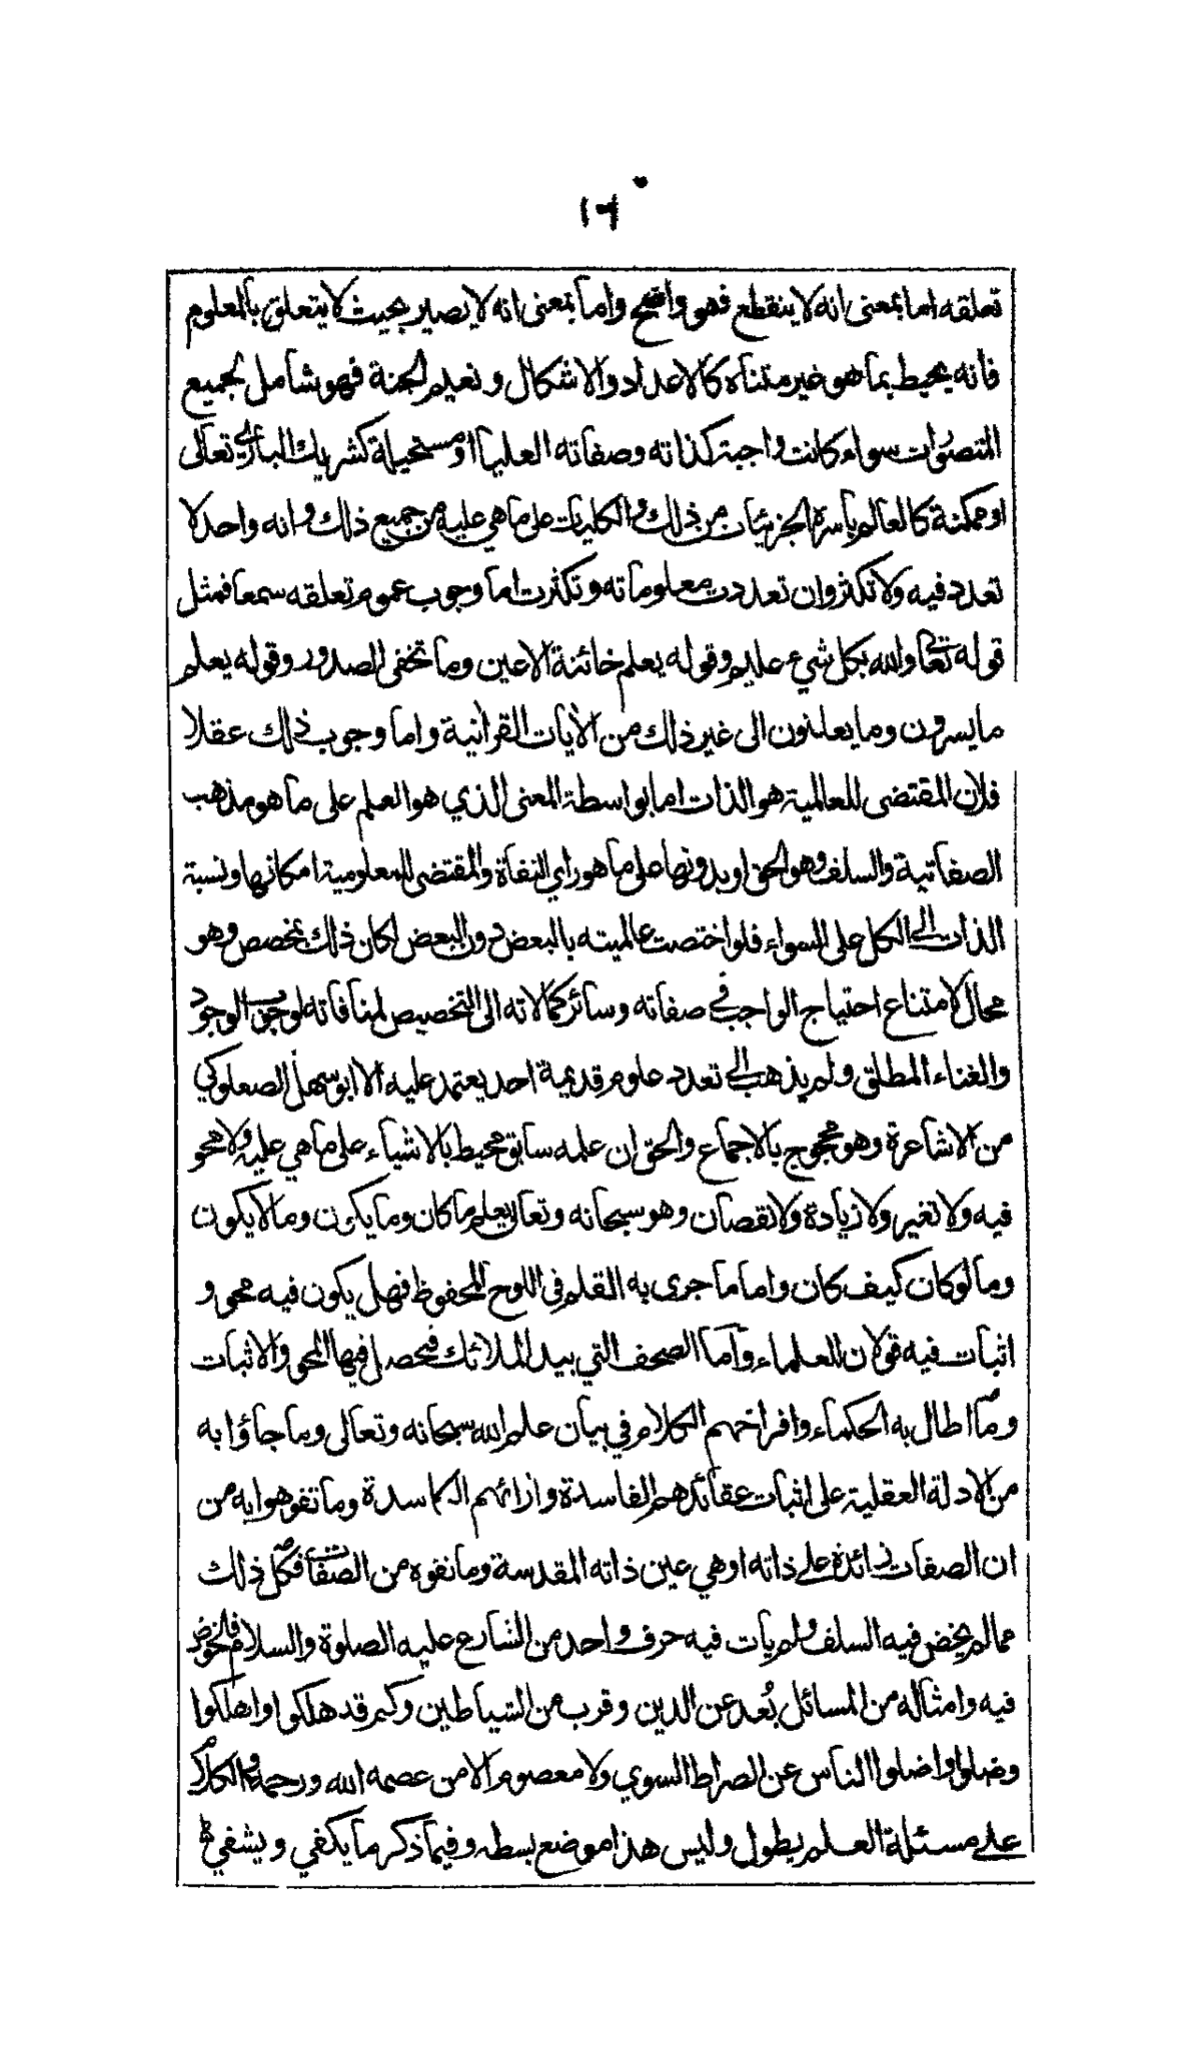 ١٠٦
تعلقه اما بمعنى انه لا ينقطع فهو واضح واما بمعنى انه لا يصير بحيث لا يتعلق بالمعلوم
فانه يحيط بما هو غير متناه كالاعداد والاشكال ونعيم الجنة فهو شامل لجميع
المتصورات سواء كانت واجبة كذاته وصفاته العليا او مستحيلة كشريك الباري تعالى
او ممكنة كالعالم بأسره الجزئيات من ذلك والكليات على ما هي عليه من جميع ذلك وانه واحد لا
تعدد فيه ولا تكثر وان تعددت معلوماته وتكثرت اما وجوب عموم تعلقه سمعا فمثل
قوله تعالى والله بكل شيء عليم وقوله يعلم خائنة الاعين وما تخفى الصدور وقوله يعلم
ما يسرون وما يعلنون الى غير ذلك من الآيات القرآنية واما وجوب ذلك عقلا
فلان المقتضى للعالمية هو الذات اما بواسطة المعنى الذي هو العلم على ما هو مذهب
الصفاتية والسلف وهو الحق او بدونها على ما هو راي النفاة والمقتضى للمعلومية امكانها ونسبة
الذات الى الكل على السواء فلو اختصت عالميته بالبعض دون البعض لكان ذلك بمخصص وهو
محال لامتناع احتياج الواجب في صفاته وسائر كمالاته الى التخصيص لمنافاته لوجوب الوجود
والغناء المطلق ولم يذهب الى تعدد علوم قديمة احد يعتمد عليه الا ابو سهل الصعلوكي
من الاشاعرة وهو محجوج بالاجماع والحق ان علمه سابق محيط بالاشياء على ما هي عليه ولا محو
فيه ولا تغير ولا زيادة ولا نقصان وهو سبحانه وتعالى يعلم ما كان وما يكون وما لا يكون
وما لو كان كيف كان واما ما جرى به القلم في اللوح المحفوظ فهل يكون فيه محو و
اثبات فيه قولان للعلماء وأما الصحف التي بيد الملائك فيحصل فيها المحو والاثبات
وما اطال به الحكماء وافراخهم الكلام في بيان علم الله سبحانه وتعالى وما جاؤا به
من الادلة العقلية على اثبات عقائدهم الفاسدة وارائهم الكاسدة وما تفوهوا به من
ان الصفات زائدة على ذاته او هي عين ذاته المقدسة وما نفوه من الصفات فكل ذلك
مما لم يخض فيه السلف ولم يات فيه حرف واحد من الشارع عليه الصلوة والسلام فالخوض
فيه وامثاله من المسائل بُعد عن الدين وقرب من الشياطين وكم قد هلكوا واهلكوا
وضلوا واضلوا الناس عن الصراط السوي ولا معصوم الا من عصمه الله ورحمه والكلام
على مسئلة العلم يطول وليس هذا موضع بسطه وفيما ذكر ما يكفي ويشفي